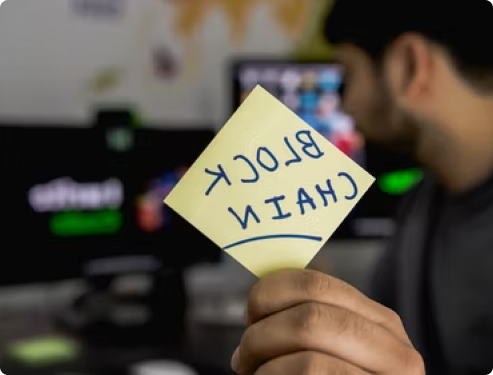 BLOCK
CHAIN